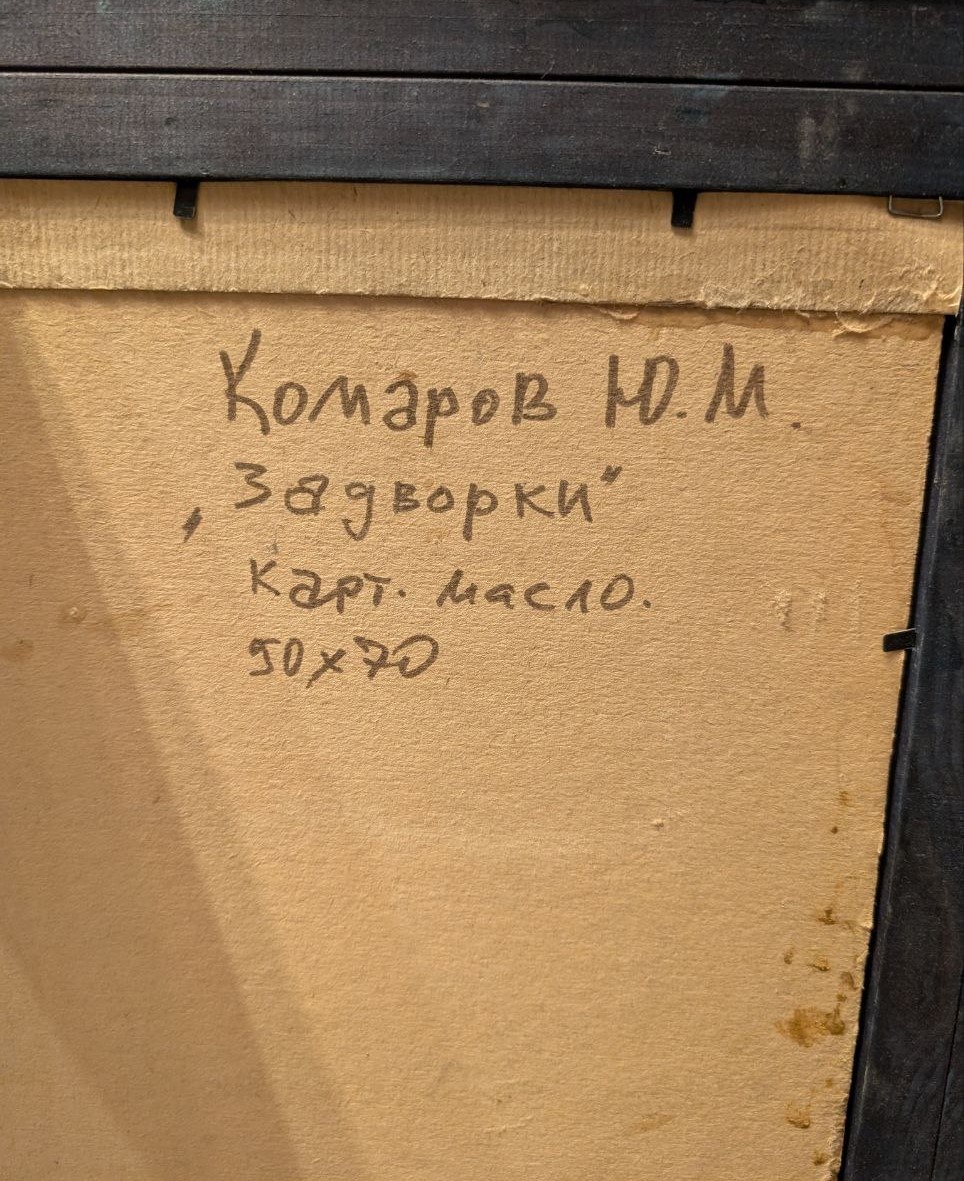 Комаров Ю.М.
„Задворки“
Карт. масло.
50х70